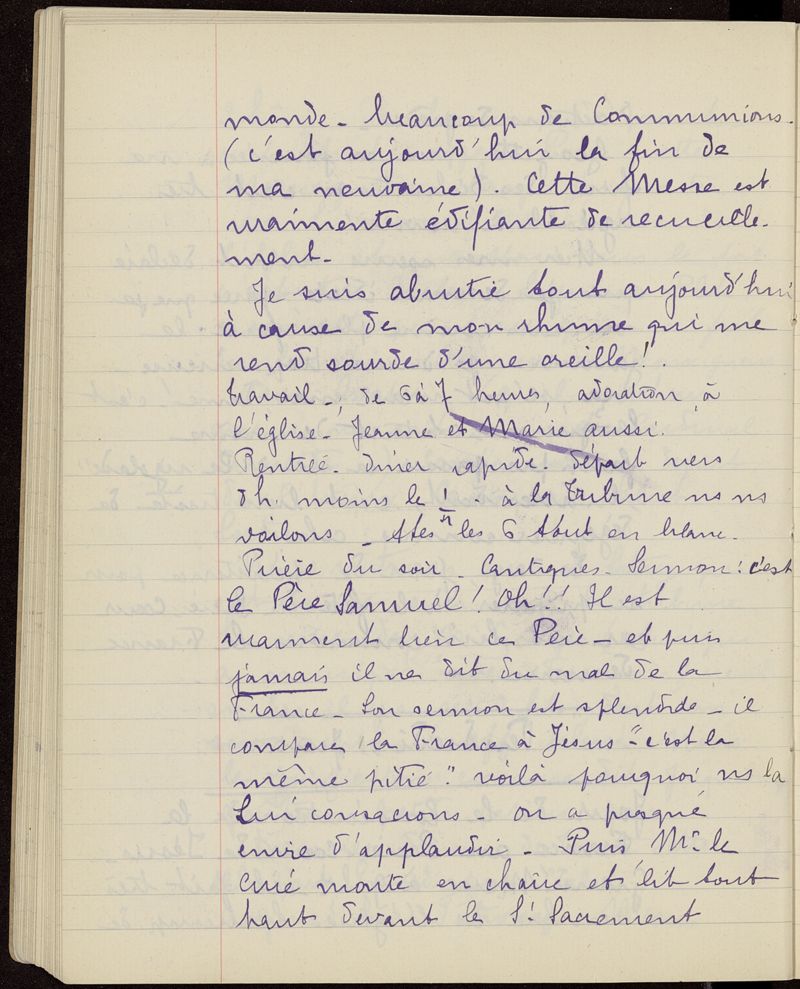 monde - beaucoup de Communions -
(c'est aujourd'hui la fin de
ma neuvaine). Cette Messe est
vraimente édifiante de recueille-
ment -
Je suis abrutie tout aujourd'hui
à cause de mon rhume qui me
rend sourde d'une oreille!
Travail -, de 6 à 7 heures, adoration à
l'église - Jeanne et Marie aussi.
Rentrée - dîner rapide - départ vers
8h. moins le ¼ - à la tribune ns ns
voilons - ttes les 6 tout en blanc -
Prière du soir - Cantiques - Sermon: c'est
le Père Samuel! Oh!! Il est
vraiment bien ce Père - et puis
jamais il ne dit du mal de la
France - Son sermon est splendide - il
compare la France à Jésus - "c'est la
même pitié" voilà pourquoi ns la
Lui consacrons - on a presque
envie d'applaudir - Puis Mr le
Curé monte en chaire et lit tout
haut devant le St Sacrement